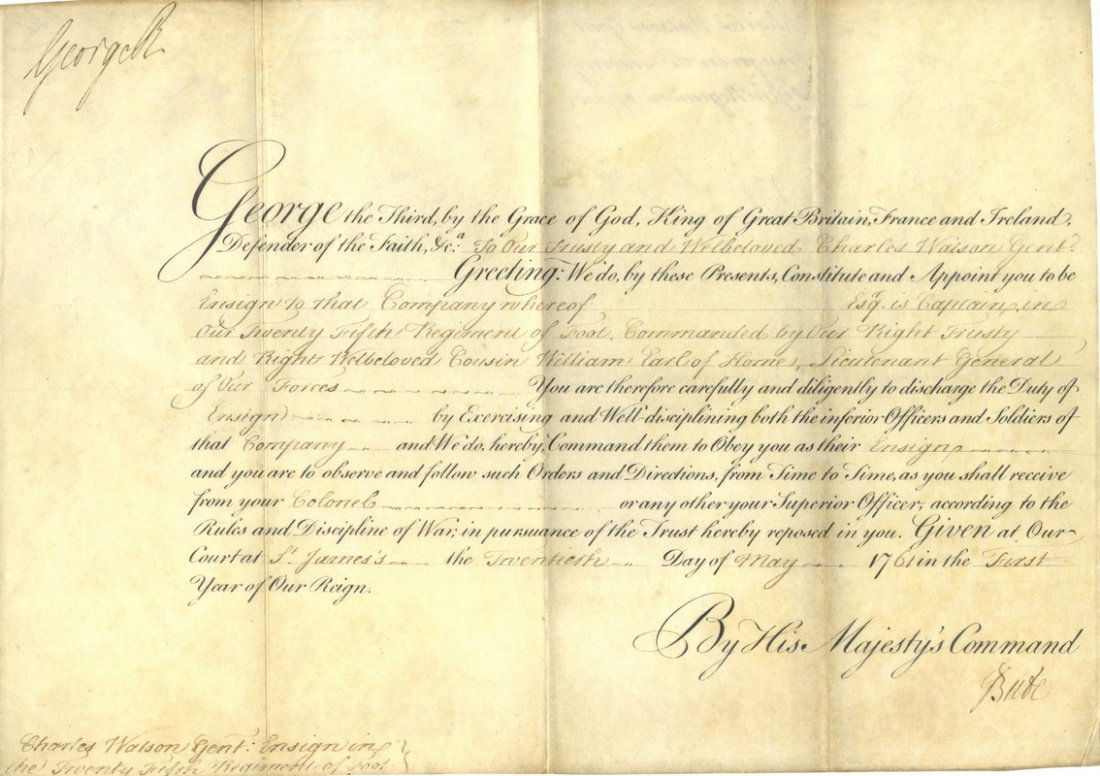 George R
George the Third, by the Grace of God, King of Great Britain, France and Ireland,
Defender of the Faith, &c.ª To Our Trusty and Welbeloved Charles Watson Gent.ⁿ
Greeting: We do, by these Presents, Constitute and Appoint you to be
Ensign to that Company whereof Esq.ʳ is Captain, in
Our Twenty Fifth Regiment of Foot, Commanded by Our Right Trusty
and Right Welbeloved Cousin William Earl of Home, Lieutenant General
of Our Forces You are therefore carefully and diligently to discharge the Duty of
Ensign by Exercising and Well-disciplining both the inferior Officers and Soldiers of
that Company and We do hereby Command them to Obey you as their Ensign
and you are to observe and follow such Orders and Directions, from Time to Time, as you shall receive
from your Colonel or any other your Superior Officer, according to the
Rules and Discipline of War, in pursuance of the Trust hereby reposed in you. Given at Our
Court at S.ᵗ James's the Twentieth Day of May 1761 in the First
Year of Our Reign.
By His Majesty's Command
Bute
Charles Watson Gent. Ensign in
the Twenty Fifth Regiment of Foot